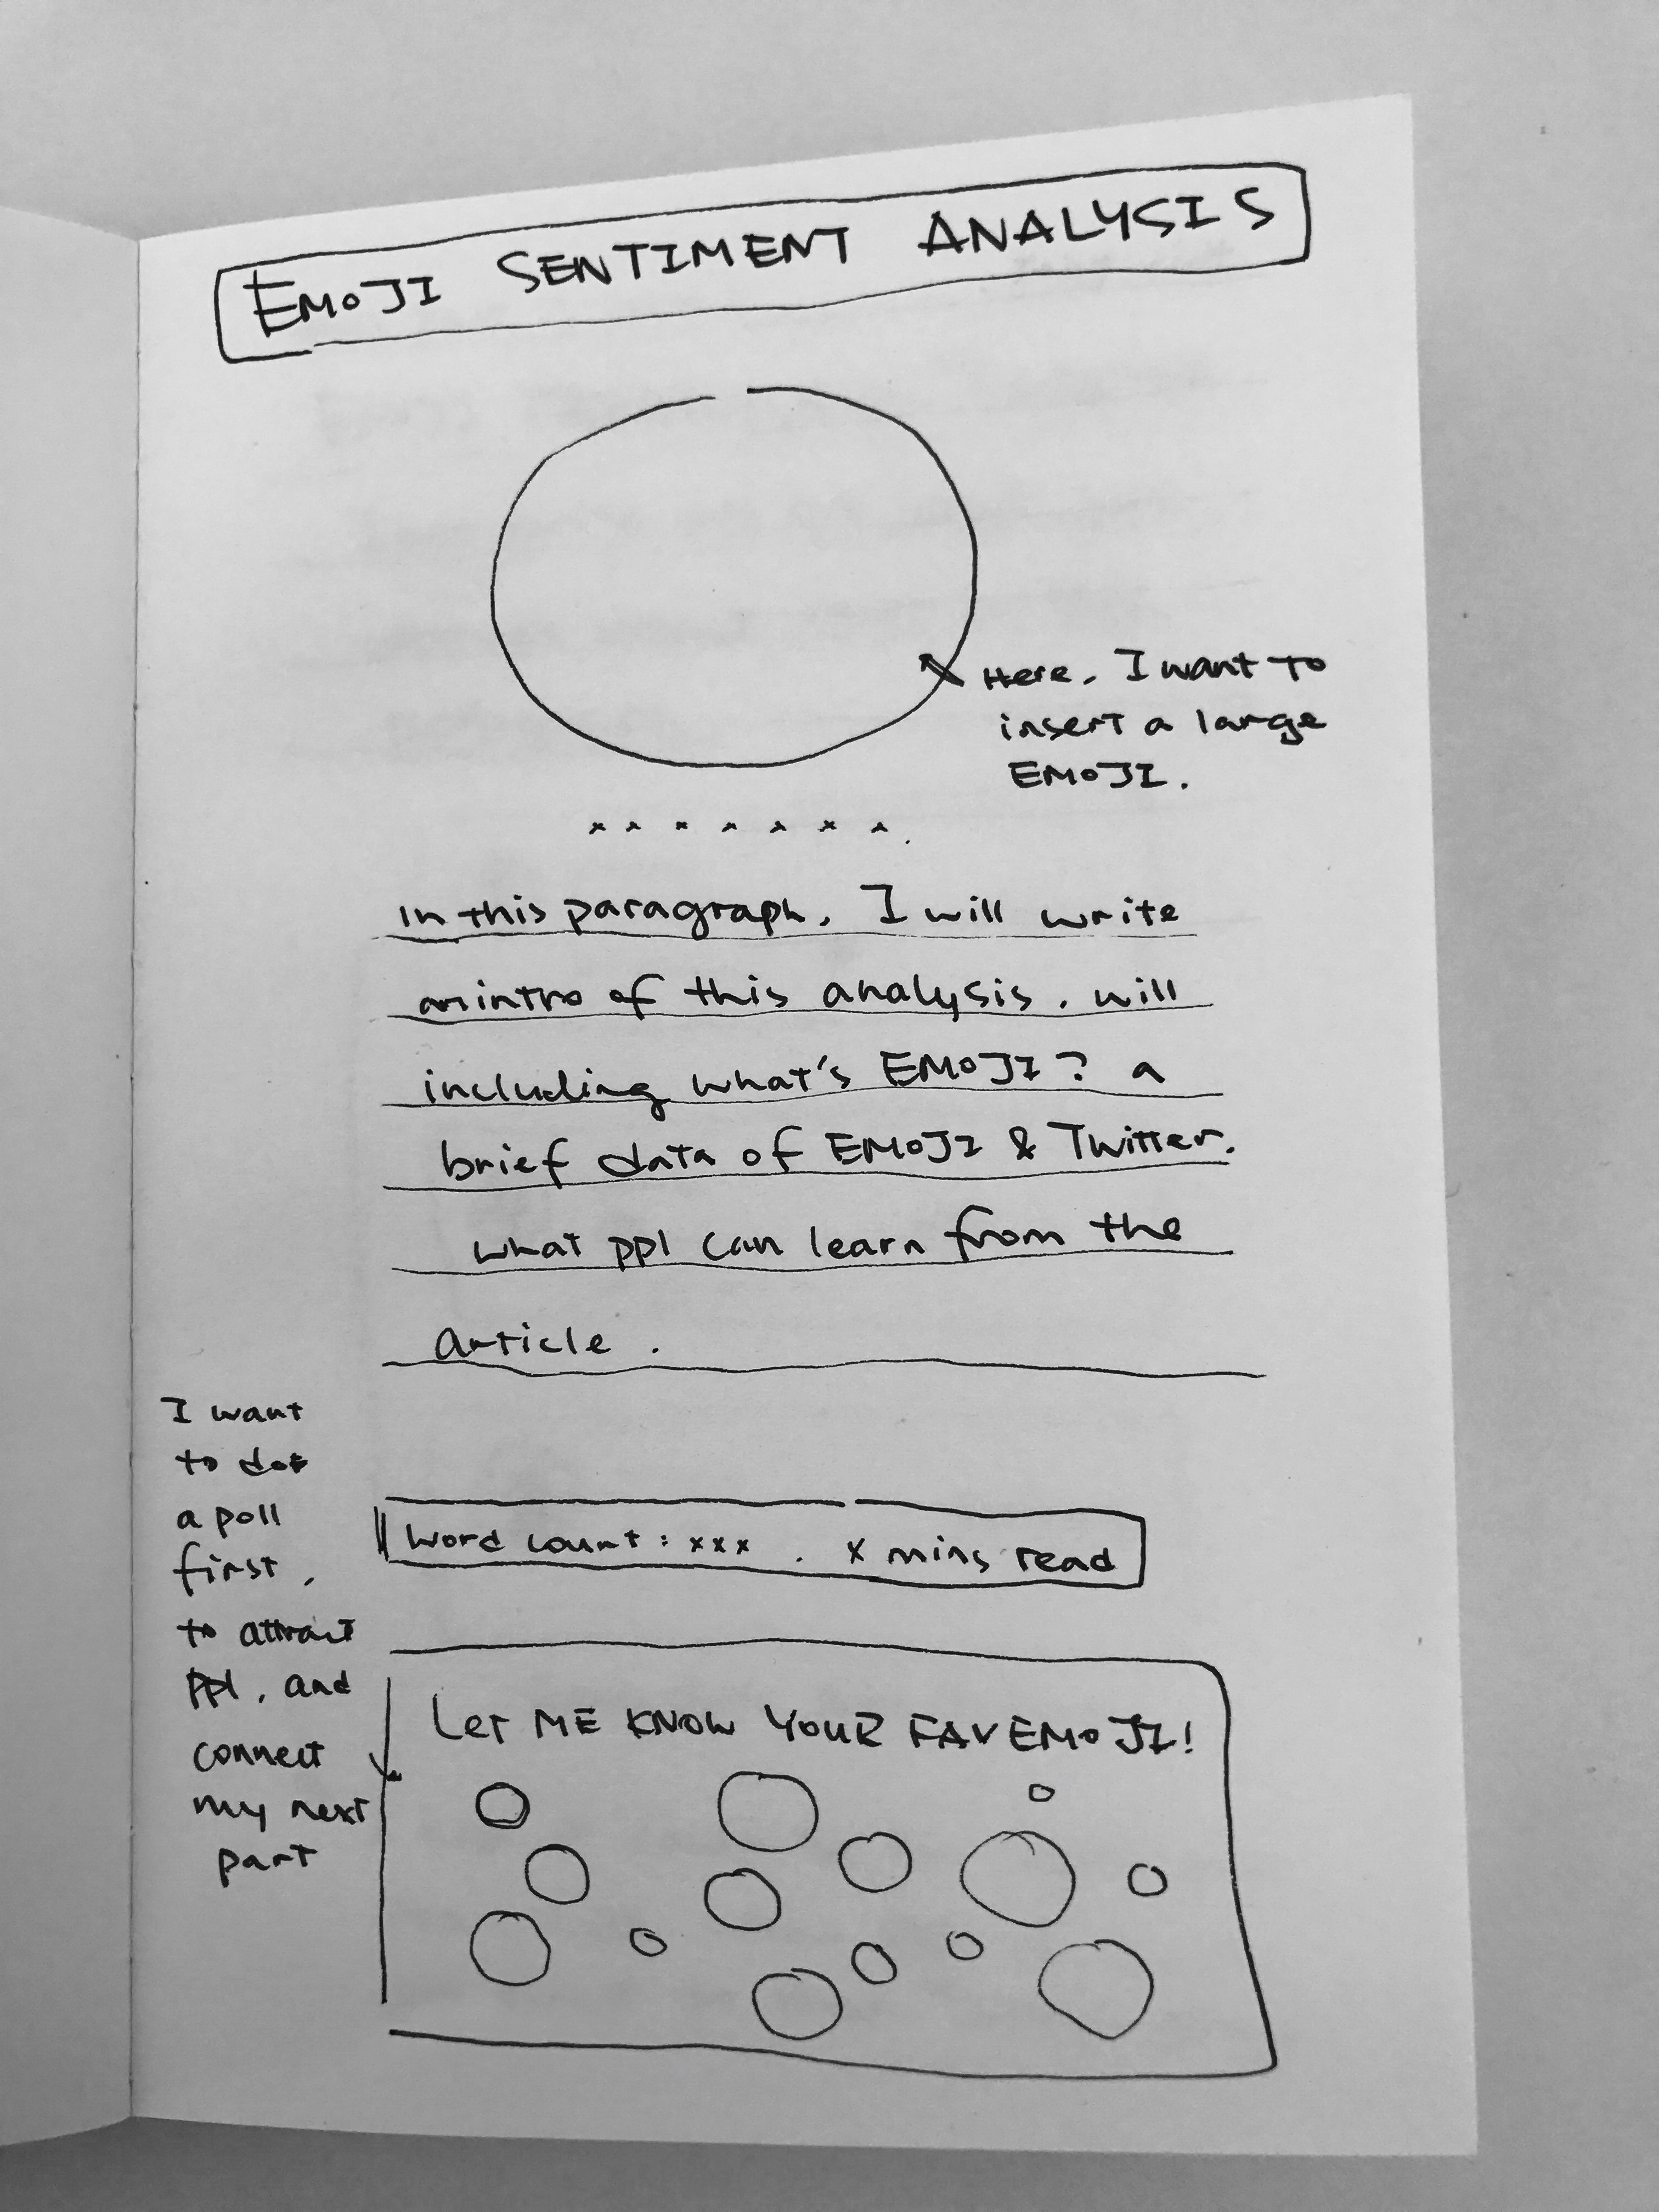 EMOJI SENTIMENT ANALYSIS
Here, I want to
insert a large
EMOJI.
x x x x x x x.
In this paragraph, I will write
an intro of this analysis. will
including what's EMOJI? a
brief data of EMOJI & Twitter.
what ppl can learn from the
article.
I want
to do
a poll
first,
to attract
ppl, and
connect
my next
part
Word count: xxx. x mins read
Let ME KNOW YOUR FAV EMOJI!